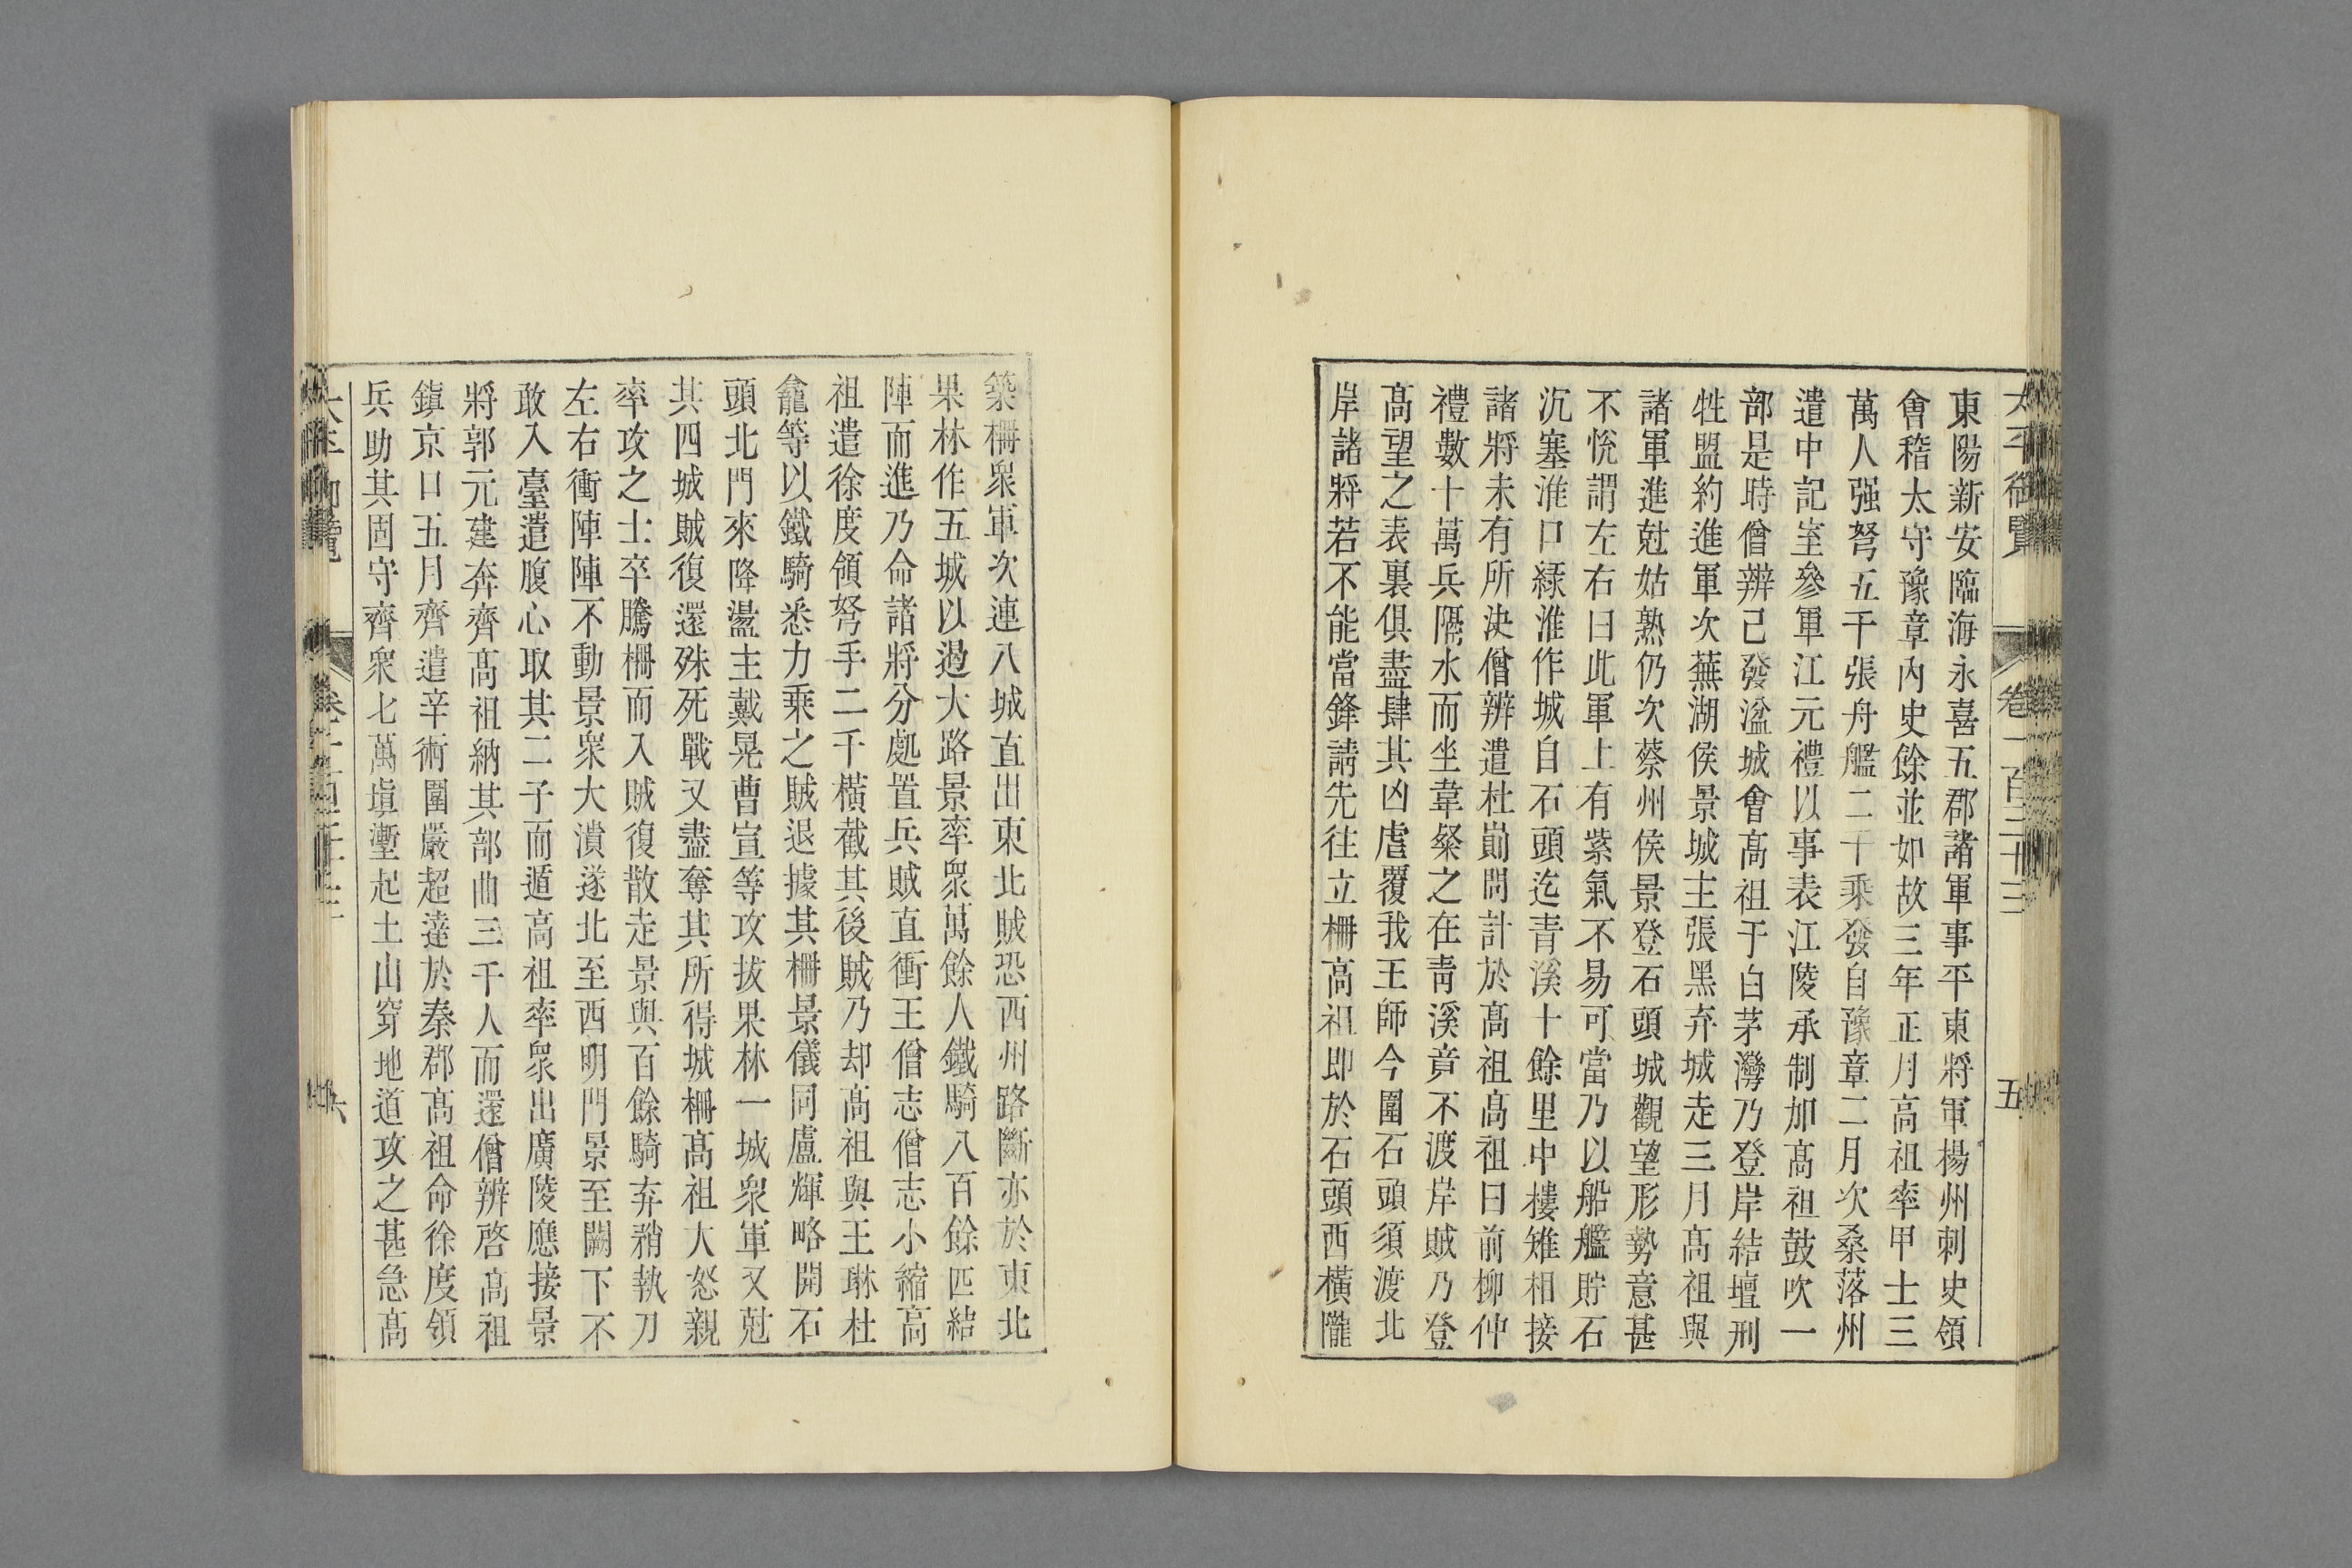 太平御覽 卷一百三十三 五
東陽新安臨海永喜五郡諸軍事平東將軍楊州刺史領
會稽太守豫章內史餘並如故三年正月高祖率甲士三
萬人强弩五千張舟艦二千乘發自豫章二月次桑落州
遣中記室參軍江元禮以事表江陵承制加高祖鼓吹一
部是時僧辨已發湓城會高祖于白茅灣乃登岸結壇刑
牲盟約進軍次蕪湖侯景城主張黑弃城走三月高祖與
諸軍進尅姑熟仍次蔡州侯景登石頭城觀望形勢意甚
不悅謂左右曰此軍上有紫氣不易可當乃以船艦貯石
沉塞淮口緣淮作城自石頭迄青溪十餘里中樓雉相接
諸將未有所決僧辨遣杜崱問計於高祖高祖曰前柳仲
禮數十萬兵隔水而坐韋粲之在青溪竟不渡岸賊乃登
高望之表裏俱盡肆其凶虐覆我王師今圍石頭須渡北
岸諸將若不能當鋒請先往立柵高祖即於石頭西橫隴
築柵衆軍次連八城直出東北賊恐西州路斷亦於東北
果林作五城以遏大路景率衆萬餘人鐵騎八百餘匹結
陣而進乃命諸將分處置兵賊直衝王僧志僧志小縮高
祖遣徐度領弩手二千橫截其後賊乃却高祖與王琳杜
龕等以鐵騎悉力乘之賊退據其柵景儀同盧輝略開石
頭北門來降盪主戴晃曹宣等攻拔果林一城衆軍又尅
其四城賊復還殊死戰又盡奪其所得城柵高祖大怒親
率攻之士卒騰柵而入賊復散走景與百餘騎弃矟執刀
左右衝陣陣不動景衆大潰遂北至西明門景至闕下不
敢入臺遣腹心取其二子而遁高祖率衆出廣陵應接景
將郭元建奔齊高祖納其部曲三千人而還僧辨啓高祖
鎮京口五月齊遣辛術圍嚴超達於秦郡高祖命徐度領
兵助其固守齊衆七萬塡塹起土山穿地道攻之甚急高